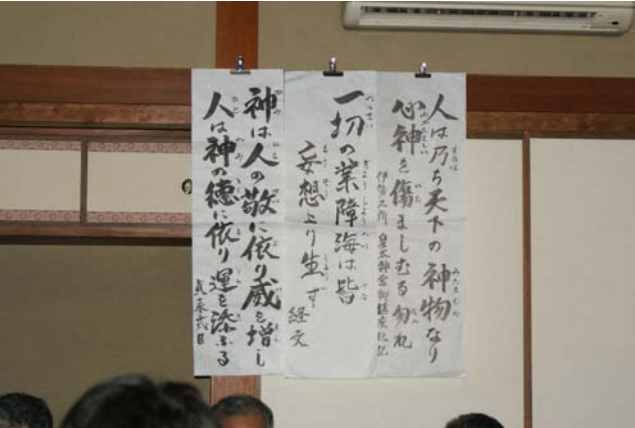 人は乃ち天下の神物なり
心神を傷ましむる勿れ
伊勢二所皇太神宮御鎮座伝記
一切の業障海は皆
妄想より生ず 経文
神は人の敬に依り威を増し
人は神の徳に依り運を添ふる
貞永式目